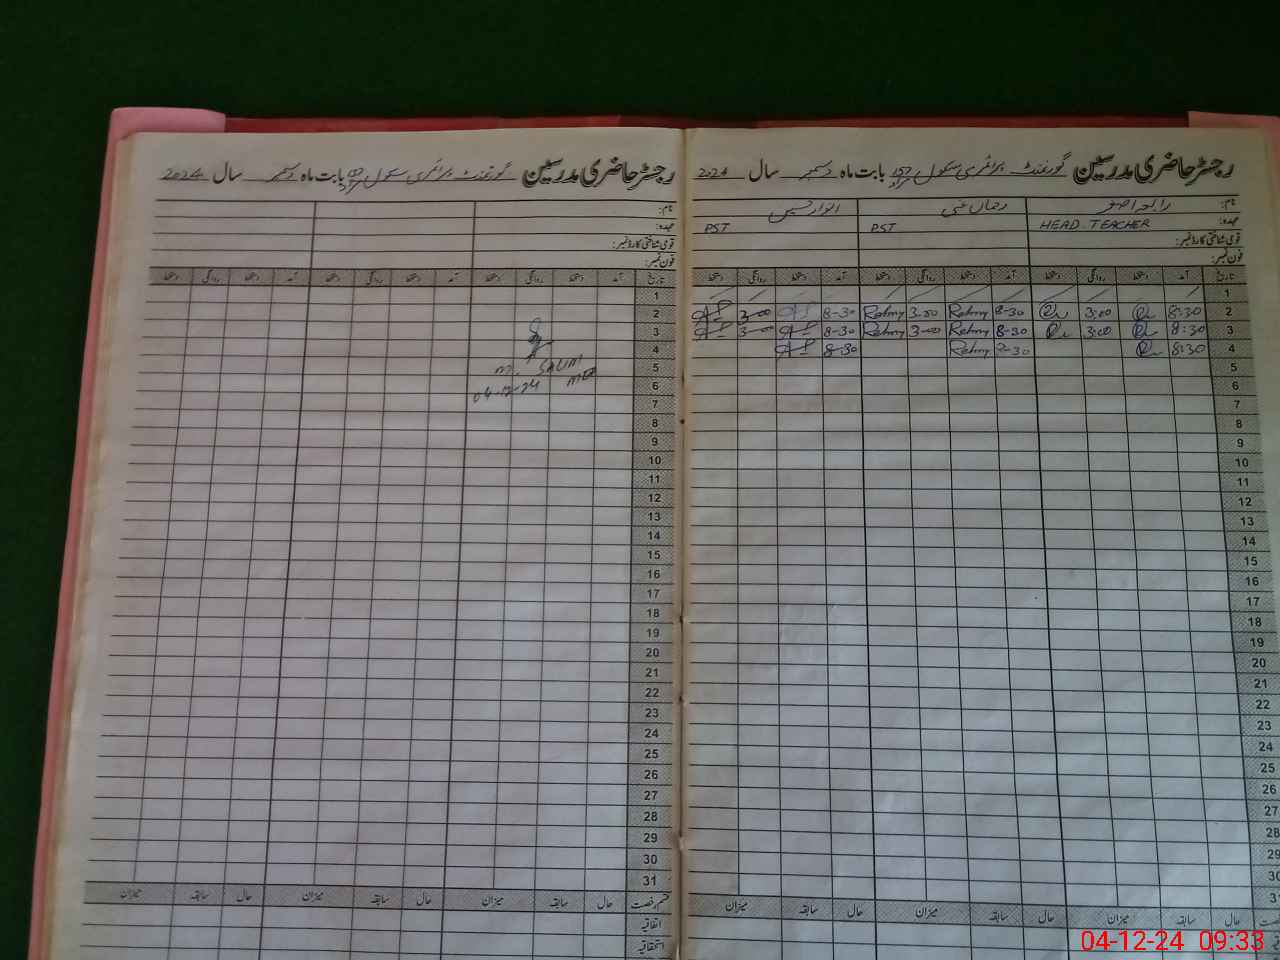 رجسٹر حاضری مدرسین گورنمنٹ پرائمری سکول بابت ماہ دسمبر سال 2024
نام:
عہدہ: HEAD TEACHER PST PST
قومی شناختی کارڈ نمبر:
فون نمبر:
تاریخ آمد دستخط روانگی دستخط آمد دستخط روانگی دستخط آمد دستخط روانگی دستخط
1
2 8:30 3:00 8-30 Rehmy 3-00 Rehmy 8-30 3-00
3 8:30 3:00 8-30 Rehmy 3-00 Rehmy 8-30 3-00
4 8:30 8-30 Rehmy 8-30
5
6
7
8
9
10
11
12
13
14
15
16
17
18
19
20
21
22
23
24
25
26
27
28
29
30
31
حال سابقہ میزان حال سابقہ میزان حال سابقہ میزان
رجسٹر حاضری مدرسین گورنمنٹ پرائمری سکول بابت ماہ دسمبر سال 2024
نام:
عہدہ:
قومی شناختی کارڈ نمبر:
فون نمبر:
تاریخ آمد دستخط روانگی دستخط آمد دستخط روانگی دستخط آمد دستخط روانگی دستخط
1
2
3
4
5 M. SALIM
6 04-12-24
7
8
9
10
11
12
13
14
15
16
17
18
19
20
21
22
23
24
25
26
27
28
29
30
31
قسم رخصت حال سابقہ میزان حال سابقہ میزان حال سابقہ میزان
اتفاقیہ
استحقاقیہ
04-12-24 09:33